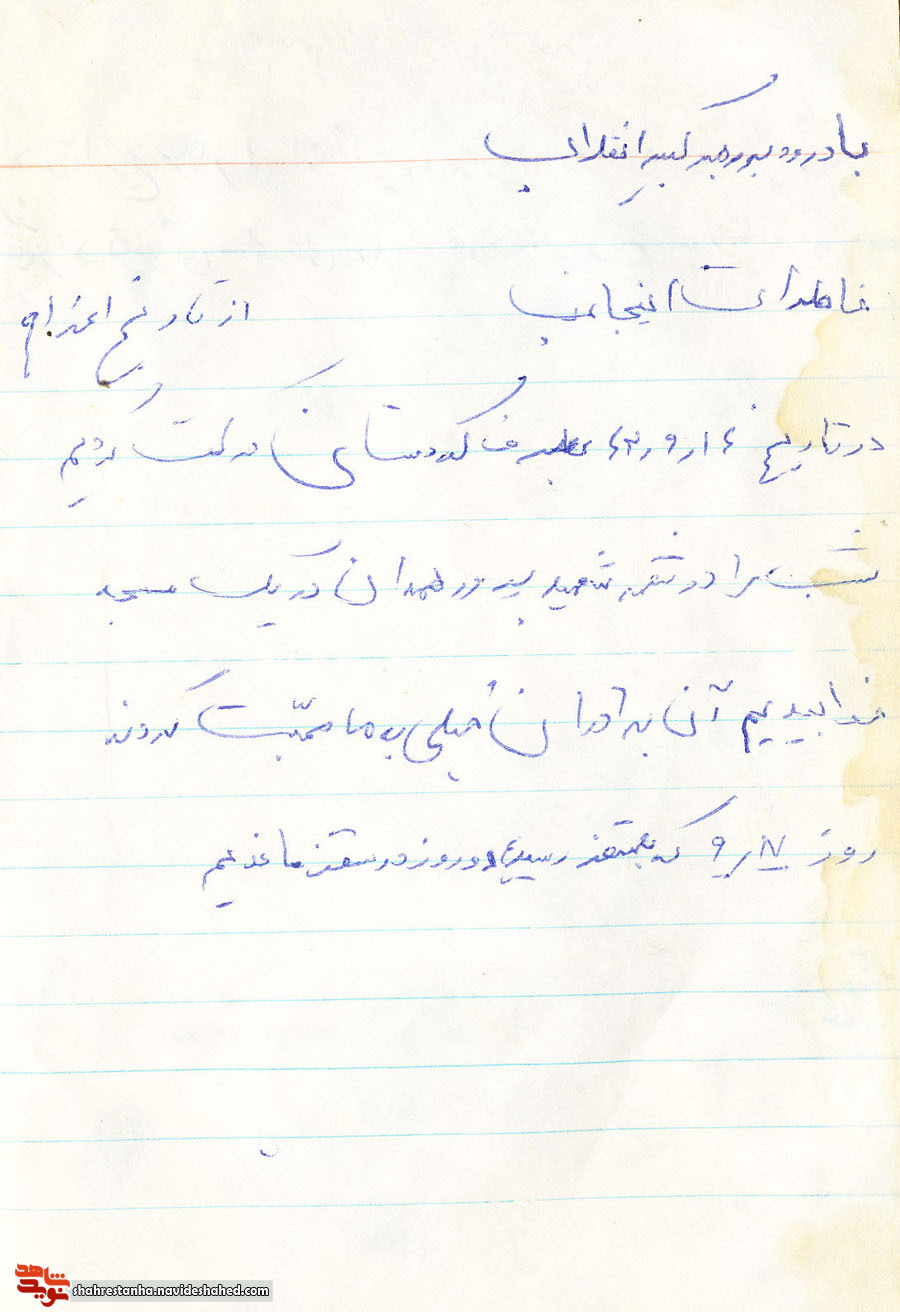 با درود به رهبر کبیر انقلاب
خاطرات اینجانب از تاریخ اعزام
در تاریخ ۱۶ر۹ر۶۲ بطرف کردستان حرکت کردیم
شب را در شهر شهید پرور همدان در یک مسجد
خوابیدیم آن برادران خیلی به ما محبّت کردند
روز ۱۷ر۹ که بسقز رسیدیم دو روز در سقز ماندیم
نوید شاهد
shahrestanha.navideshahed.com